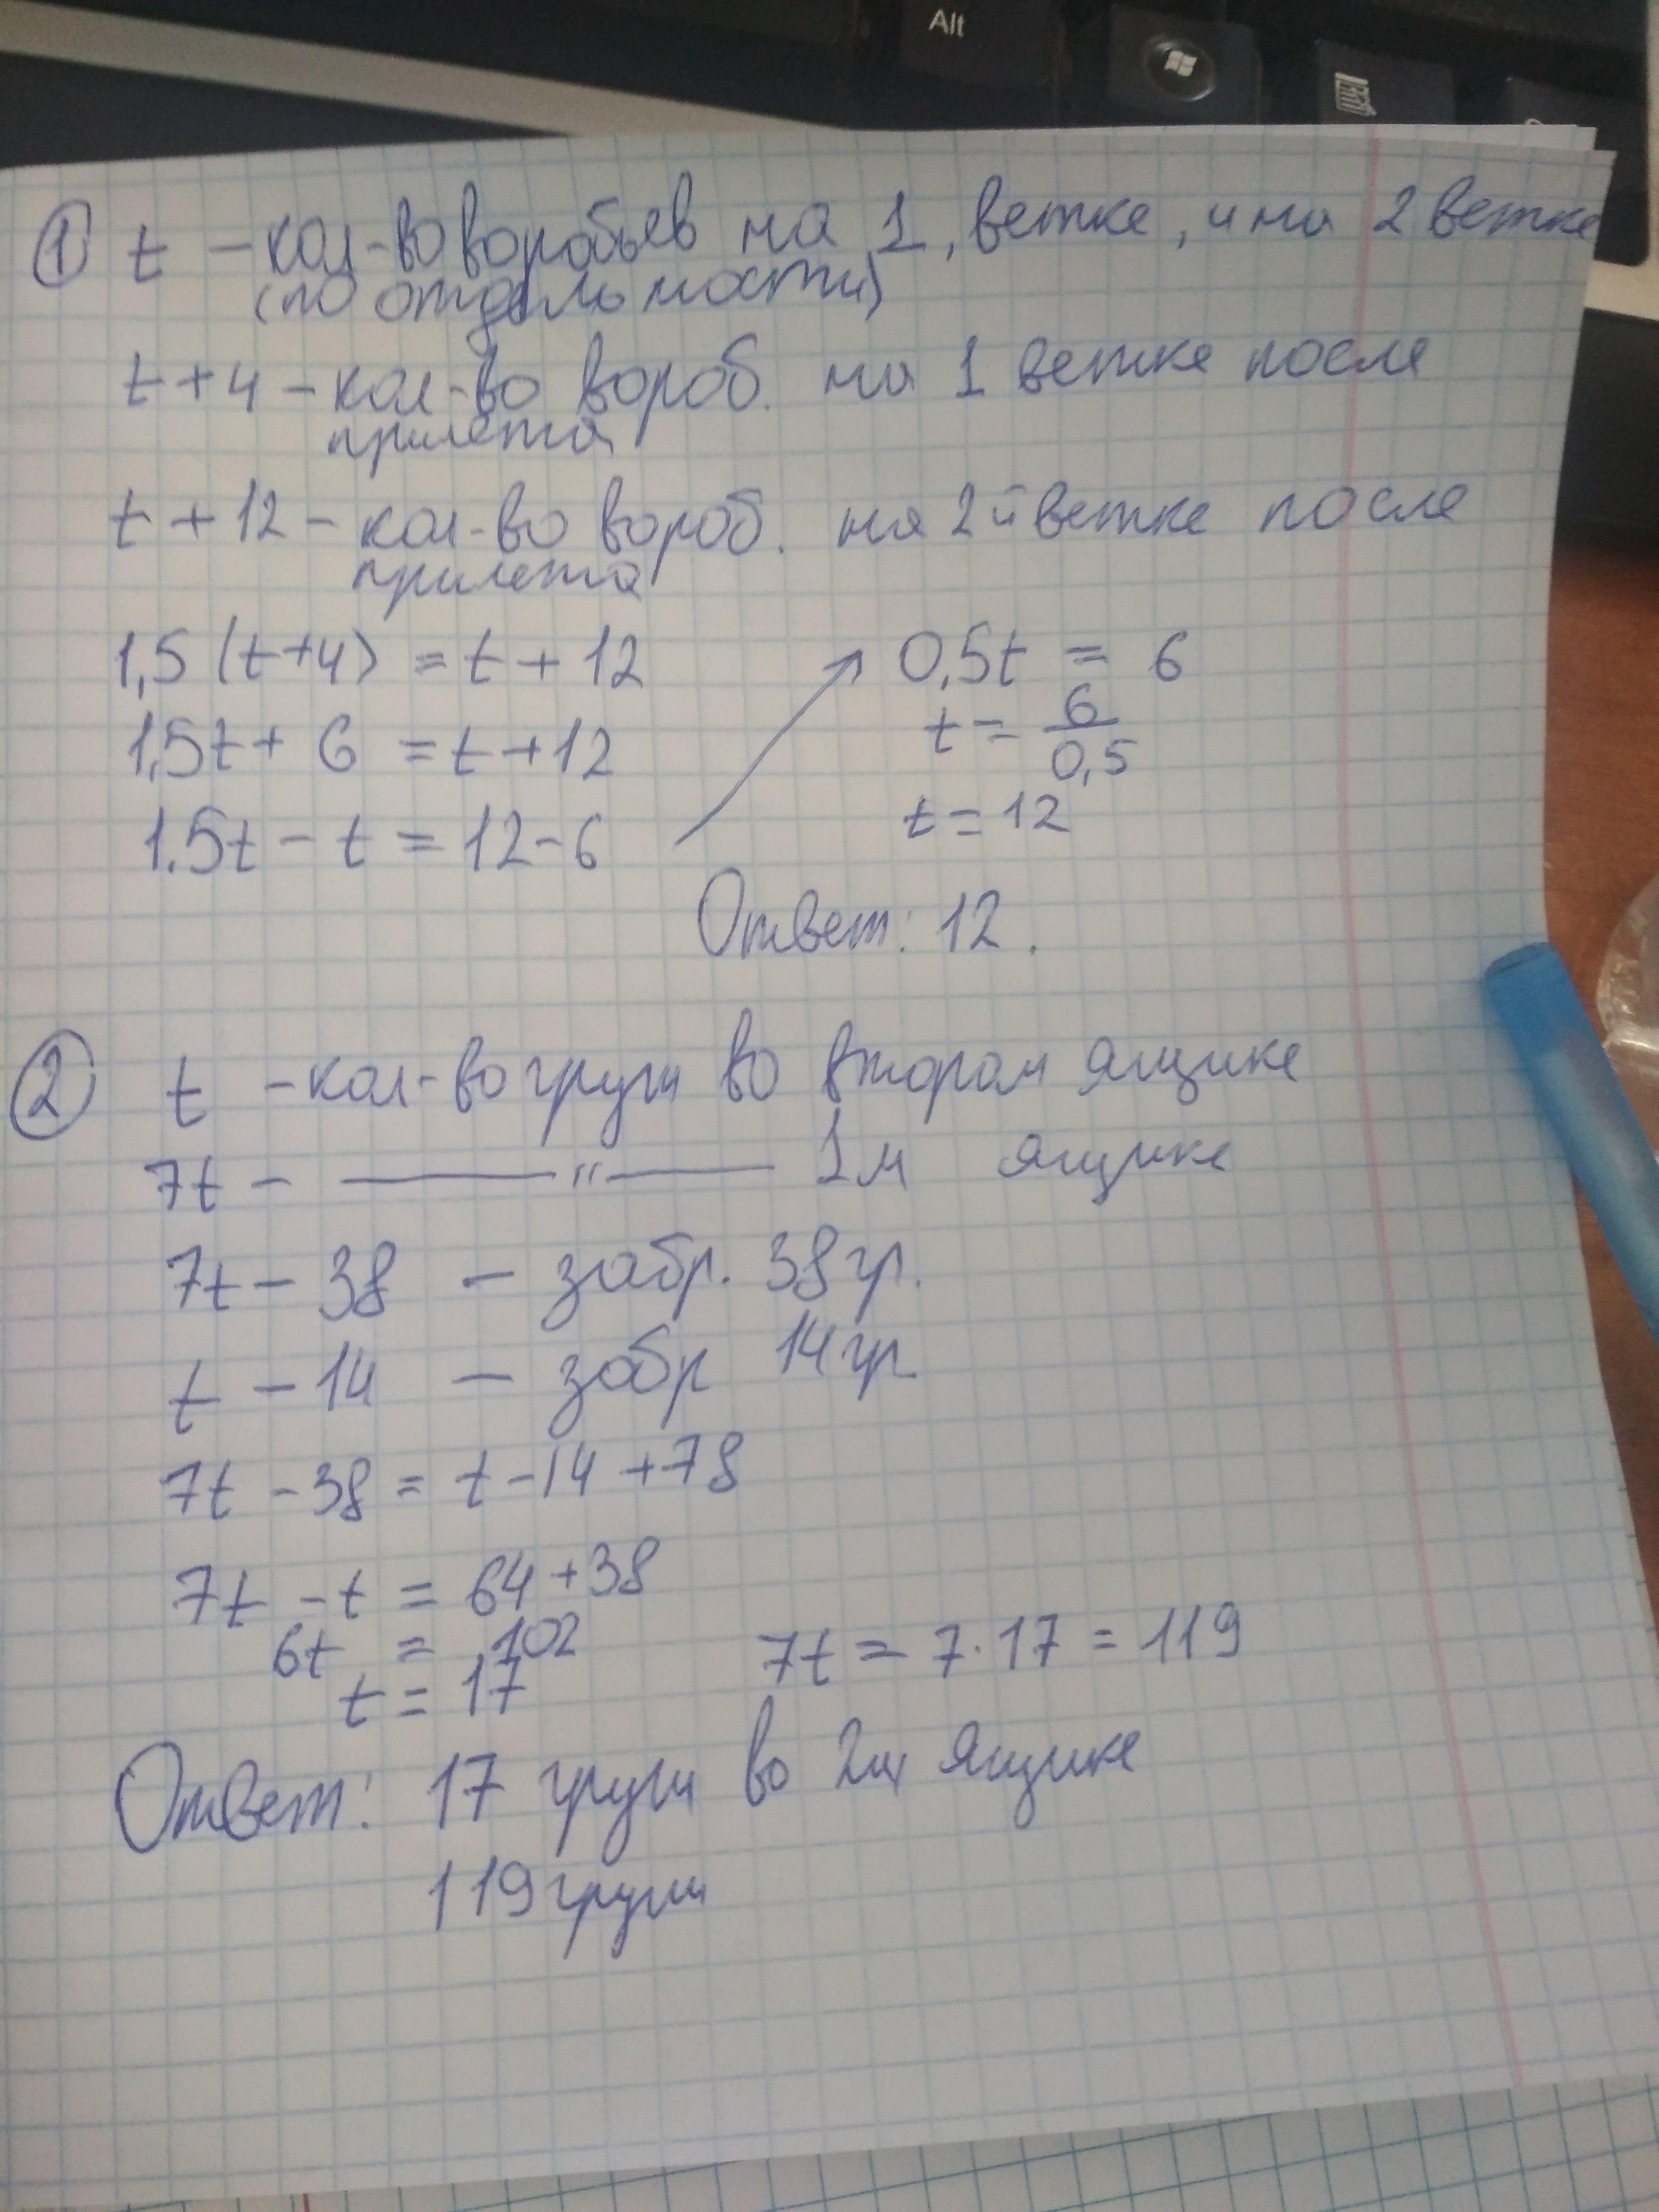 Alt
① t – кол-во воробьев на 1, ветке, и на 2 ветке
(по отдельности)
t + 4 – кол-во вороб. на 1 ветке после
прилета
t + 12 – кол-во вороб. на 2й ветке после
прилета
1,5 (t+4) = t + 12
1,5t + 6 = t + 12
1.5t – t = 12 – 6
0,5t = 6
t = 6/0,5
t = 12
Ответ: 12.
② t – кол-во груш во втором ящике
7t – —— " —— 1м ящике
7t – 38 – забр. 38 гр.
t – 14 – забр 14 гр.
7t – 38 = t – 14 + 78
7t – t = 64 + 38
6t = 102
t = 17
7t = 7 · 17 = 119
Ответ: 17 груш во 2м ящике
119 груш